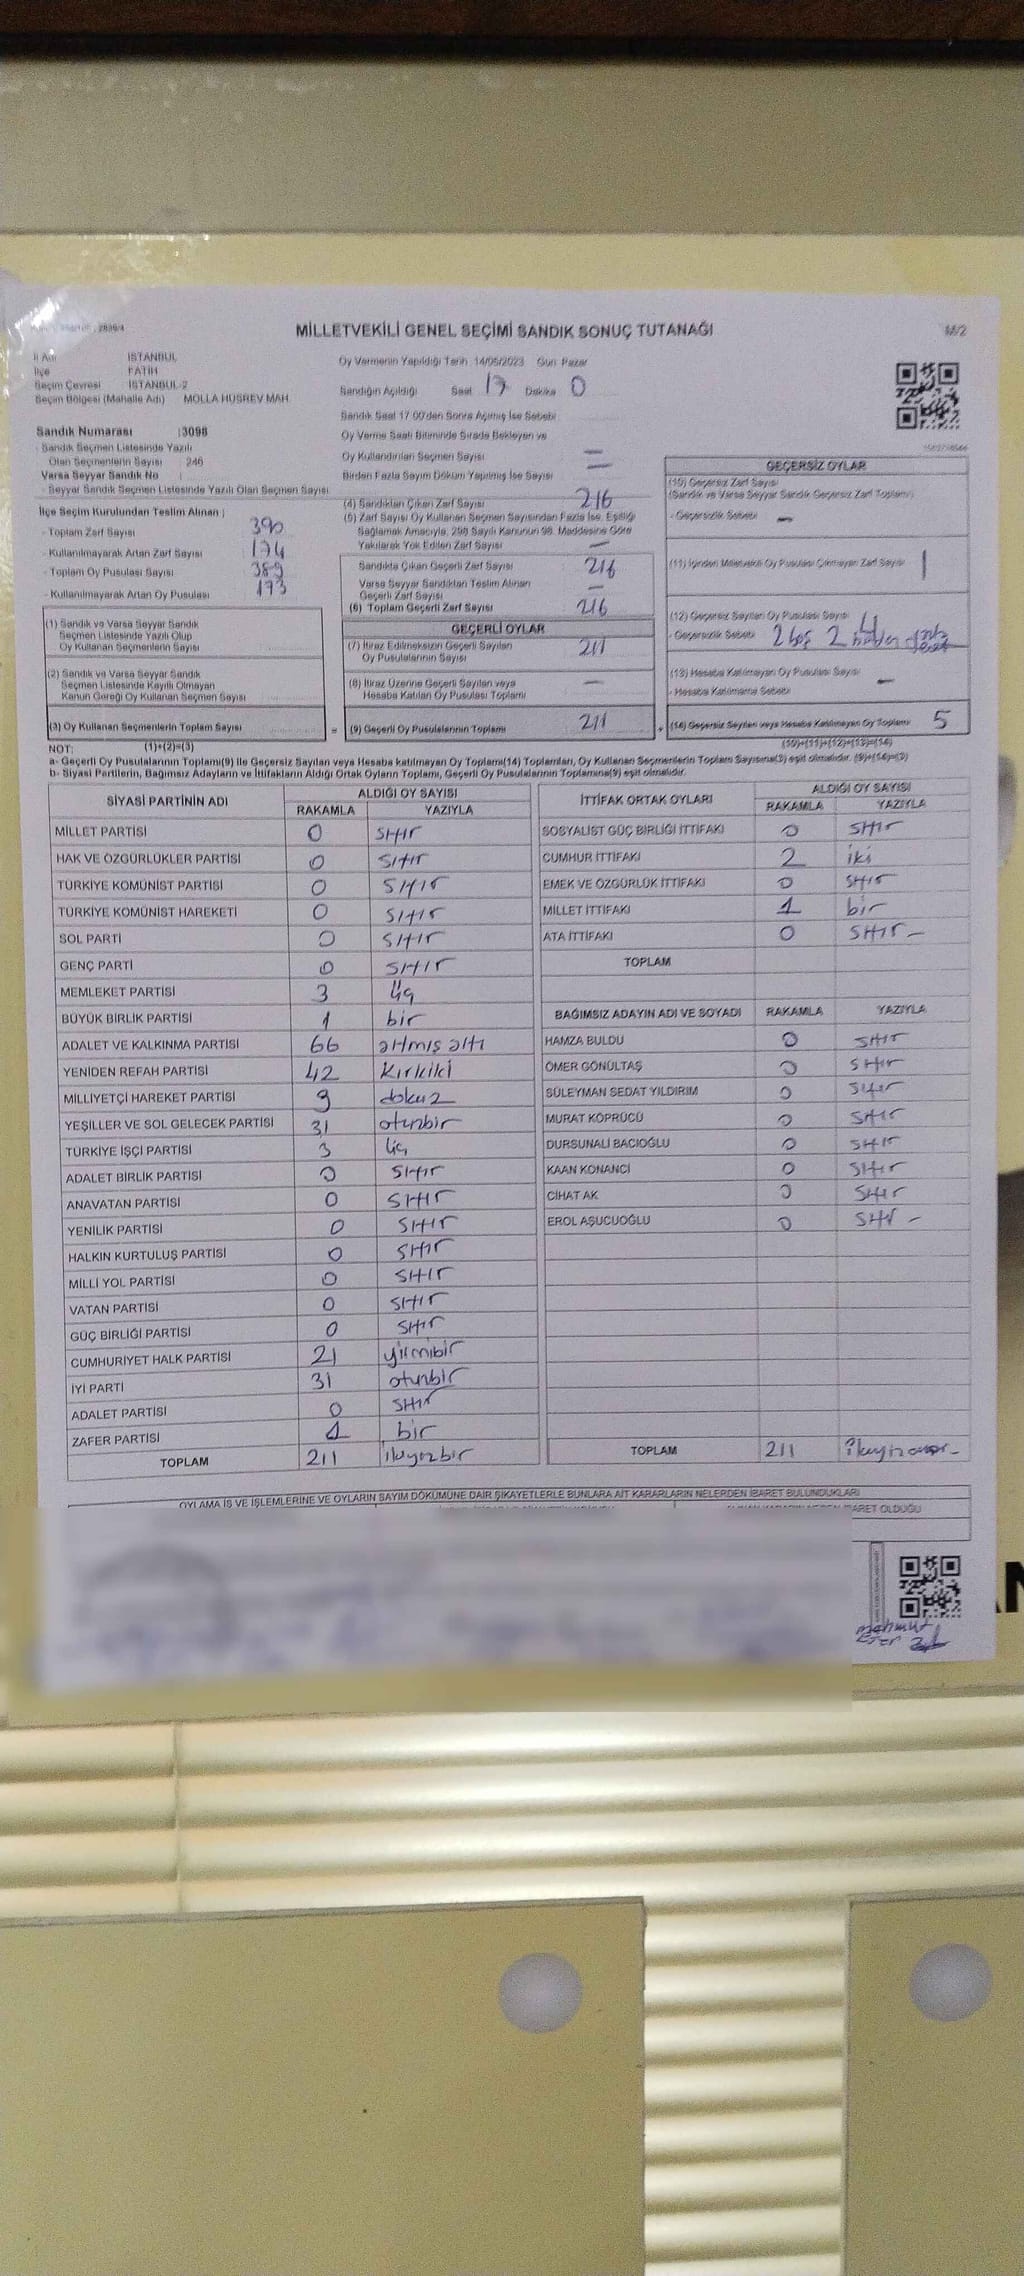 MİLLETVEKİLİ GENEL SEÇİMİ SANDIK SONUÇ TUTANAĞI
M/2
İl Adı İSTANBUL
İlçe FATİH
Seçim Çevresi İSTANBUL-2
Seçim Bölgesi (Mahalle Adı) MOLLA HÜSREV MAH.
Oy Vermenin Yapıldığı Tarih :14/05/2023 Gün: Pazar
Sandığın Açıldığı Saat 17 Dakika 0
Sandık Saat 17:00'den Sonra Açılmış İse Sebebi
Oy Verme Saati Bitiminde Sırada Bekleyen ve
Oy Kullandırılan Seçmen Sayısı —
Birden Fazla Sayım Döküm Yapılmış İse Sayısı —
Sandık Numarası :3098
- Sandık Seçmen Listesinde Yazılı
Olan Seçmenlerin Sayısı : 246
Varsa Seyyar Sandık No
- Seyyar Sandık Seçmen Listesinde Yazılı Olan Seçmen Sayısı
İlçe Seçim Kurulundan Teslim Alınan ;
- Toplam Zarf Sayısı 390
- Kullanılmayarak Artan Zarf Sayısı 174
- Toplam Oy Pusulası Sayısı 389
- Kullanılmayarak Artan Oy Pusulası 173
(1) Sandık ve Varsa Seyyar Sandık
Seçmen Listesinde Yazılı Olup
Oy Kullanan Seçmenlerin Sayısı
(2) Sandık ve Varsa Seyyar Sandık
Seçmen Listesinde Kayıtlı Olmayan
Kanun Gereği Oy Kullanan Seçmen Sayısı
(3) Oy Kullanan Seçmenlerin Toplam Sayısı
(4) Sandıktan Çıkan Zarf Sayısı 216
(5) Zarf Sayısı Oy Kullanan Seçmen Sayısından Fazla İse, Eşitliği
Sağlamak Amacıyla, 298 Sayılı Kanunun 98. Maddesine Göre
Yakılarak Yok Edilen Zarf Sayısı —
Sandıkta Çıkan Geçerli Zarf Sayısı 216
Varsa Seyyar Sandıktan Teslim Alınan
Geçerli Zarf Sayısı —
(6) Toplam Geçerli Zarf Sayısı 216
GEÇERLİ OYLAR
(7) İtiraz Edilmeksizin Geçerli Sayılan
Oy Pusulalarının Sayısı 211
(8) İtiraz Üzerine Geçerli Sayılan veya
Hesaba Katılan Oy Pusulası Toplamı —
= (9) Geçerli Oy Pusulalarının Toplamı 211
GEÇERSİZ OYLAR
(10) Geçersiz Zarf Sayısı
(Sandık ve Varsa Seyyar Sandık Geçersiz Zarf Toplamı)
- Geçersizlik Sebebi —
(11) İçinden Milletvekili Oy Pusulası Çıkmayan Zarf Sayısı 1
(12) Geçersiz Sayılan Oy Pusulası Sayısı 4
- Geçersizlik Sebebi 2 boş 2
(13) Hesaba Katılmayan Oy Pusulası Sayısı —
- Hesaba Katılmama Sebebi
+ (14) Geçersiz Sayılan veya Hesaba Katılmayan Oy Toplamı 5
NOT: (1)+(2)=(3)
(10)+(11)+(12)+(13)=(14)
a- Geçerli Oy Pusulalarının Toplamı(9) ile Geçersiz Sayılan veya Hesaba katılmayan Oy Toplamı(14) Toplamları, Oy Kullanan Seçmenlerin Toplam Sayısına(3) eşit olmalıdır. (9)+(14)=(3)
b- Siyasi Partilerin, Bağımsız Adayların ve İttifakların Aldığı Ortak Oyların Toplamı, Geçerli Oy Pusulalarının Toplamına(9) eşit olmalıdır.
SİYASİ PARTİNİN ADI ALDIĞI OY SAYISI
RAKAMLA YAZIYLA
MİLLET PARTİSİ 0 SIFIR
HAK VE ÖZGÜRLÜKLER PARTİSİ 0 SIFIR
TÜRKİYE KOMÜNİST PARTİSİ 0 SIFIR
TÜRKİYE KOMÜNİST HAREKETİ 0 SIFIR
SOL PARTİ 0 SIFIR
GENÇ PARTİ 0 SIFIR
MEMLEKET PARTİSİ 3 üç
BÜYÜK BİRLİK PARTİSİ 1 bir
ADALET VE KALKINMA PARTİSİ 66 atmış altı
YENİDEN REFAH PARTİSİ 42 kırkiki
MİLLİYETÇİ HAREKET PARTİSİ 9 dokuz
YEŞİLLER VE SOL GELECEK PARTİSİ 31 otuzbir
TÜRKİYE İŞÇİ PARTİSİ 3 üç
ADALET BİRLİK PARTİSİ 0 SIFIR
ANAVATAN PARTİSİ 0 SIFIR
YENİLİK PARTİSİ 0 SIFIR
HALKIN KURTULUŞ PARTİSİ 0 SIFIR
MİLLİ YOL PARTİSİ 0 SIFIR
VATAN PARTİSİ 0 SIFIR
GÜÇ BİRLİĞİ PARTİSİ 0 SIFIR
CUMHURİYET HALK PARTİSİ 21 yirmibir
İYİ PARTİ 31 otuzbir
ADALET PARTİSİ 0 SIFIR
ZAFER PARTİSİ 1 bir
TOPLAM 211
İTTİFAK ORTAK OYLARI ALDIĞI OY SAYISI
RAKAMLA YAZIYLA
SOSYALİST GÜÇ BİRLİĞİ İTTİFAKI 0 SIFIR
CUMHUR İTTİFAKI 2 iki
EMEK VE ÖZGÜRLÜK İTTİFAKI 0 SIFIR
MİLLET İTTİFAKI 1 bir
ATA İTTİFAKI 0 SIFIR —
TOPLAM
BAĞIMSIZ ADAYIN ADI VE SOYADI RAKAMLA YAZIYLA
HAMZA BULDU 0 SIFIR
ÖMER GÖNÜLTAŞ 0 SIFIR
SÜLEYMAN SEDAT YILDIRIM 0 SIFIR
MURAT KÖPRÜCÜ 0 SIFIR
DURSUNALİ BACIOĞLU 0 SIFIR
KAAN KONANCI 0 SIFIR
CİHAT AK 0 SIFIR
EROL AŞUCUOĞLU 0 SIFIR —
TOPLAM 211
OYLAMA İŞ VE İŞLEMLERİNE VE OYLARIN SAYIM DÖKÜMÜNE DAİR ŞİKAYETLERLE BUNLARA AİT KARARLARIN NELERDEN İBARET BULUNDUKLARI
mahmut